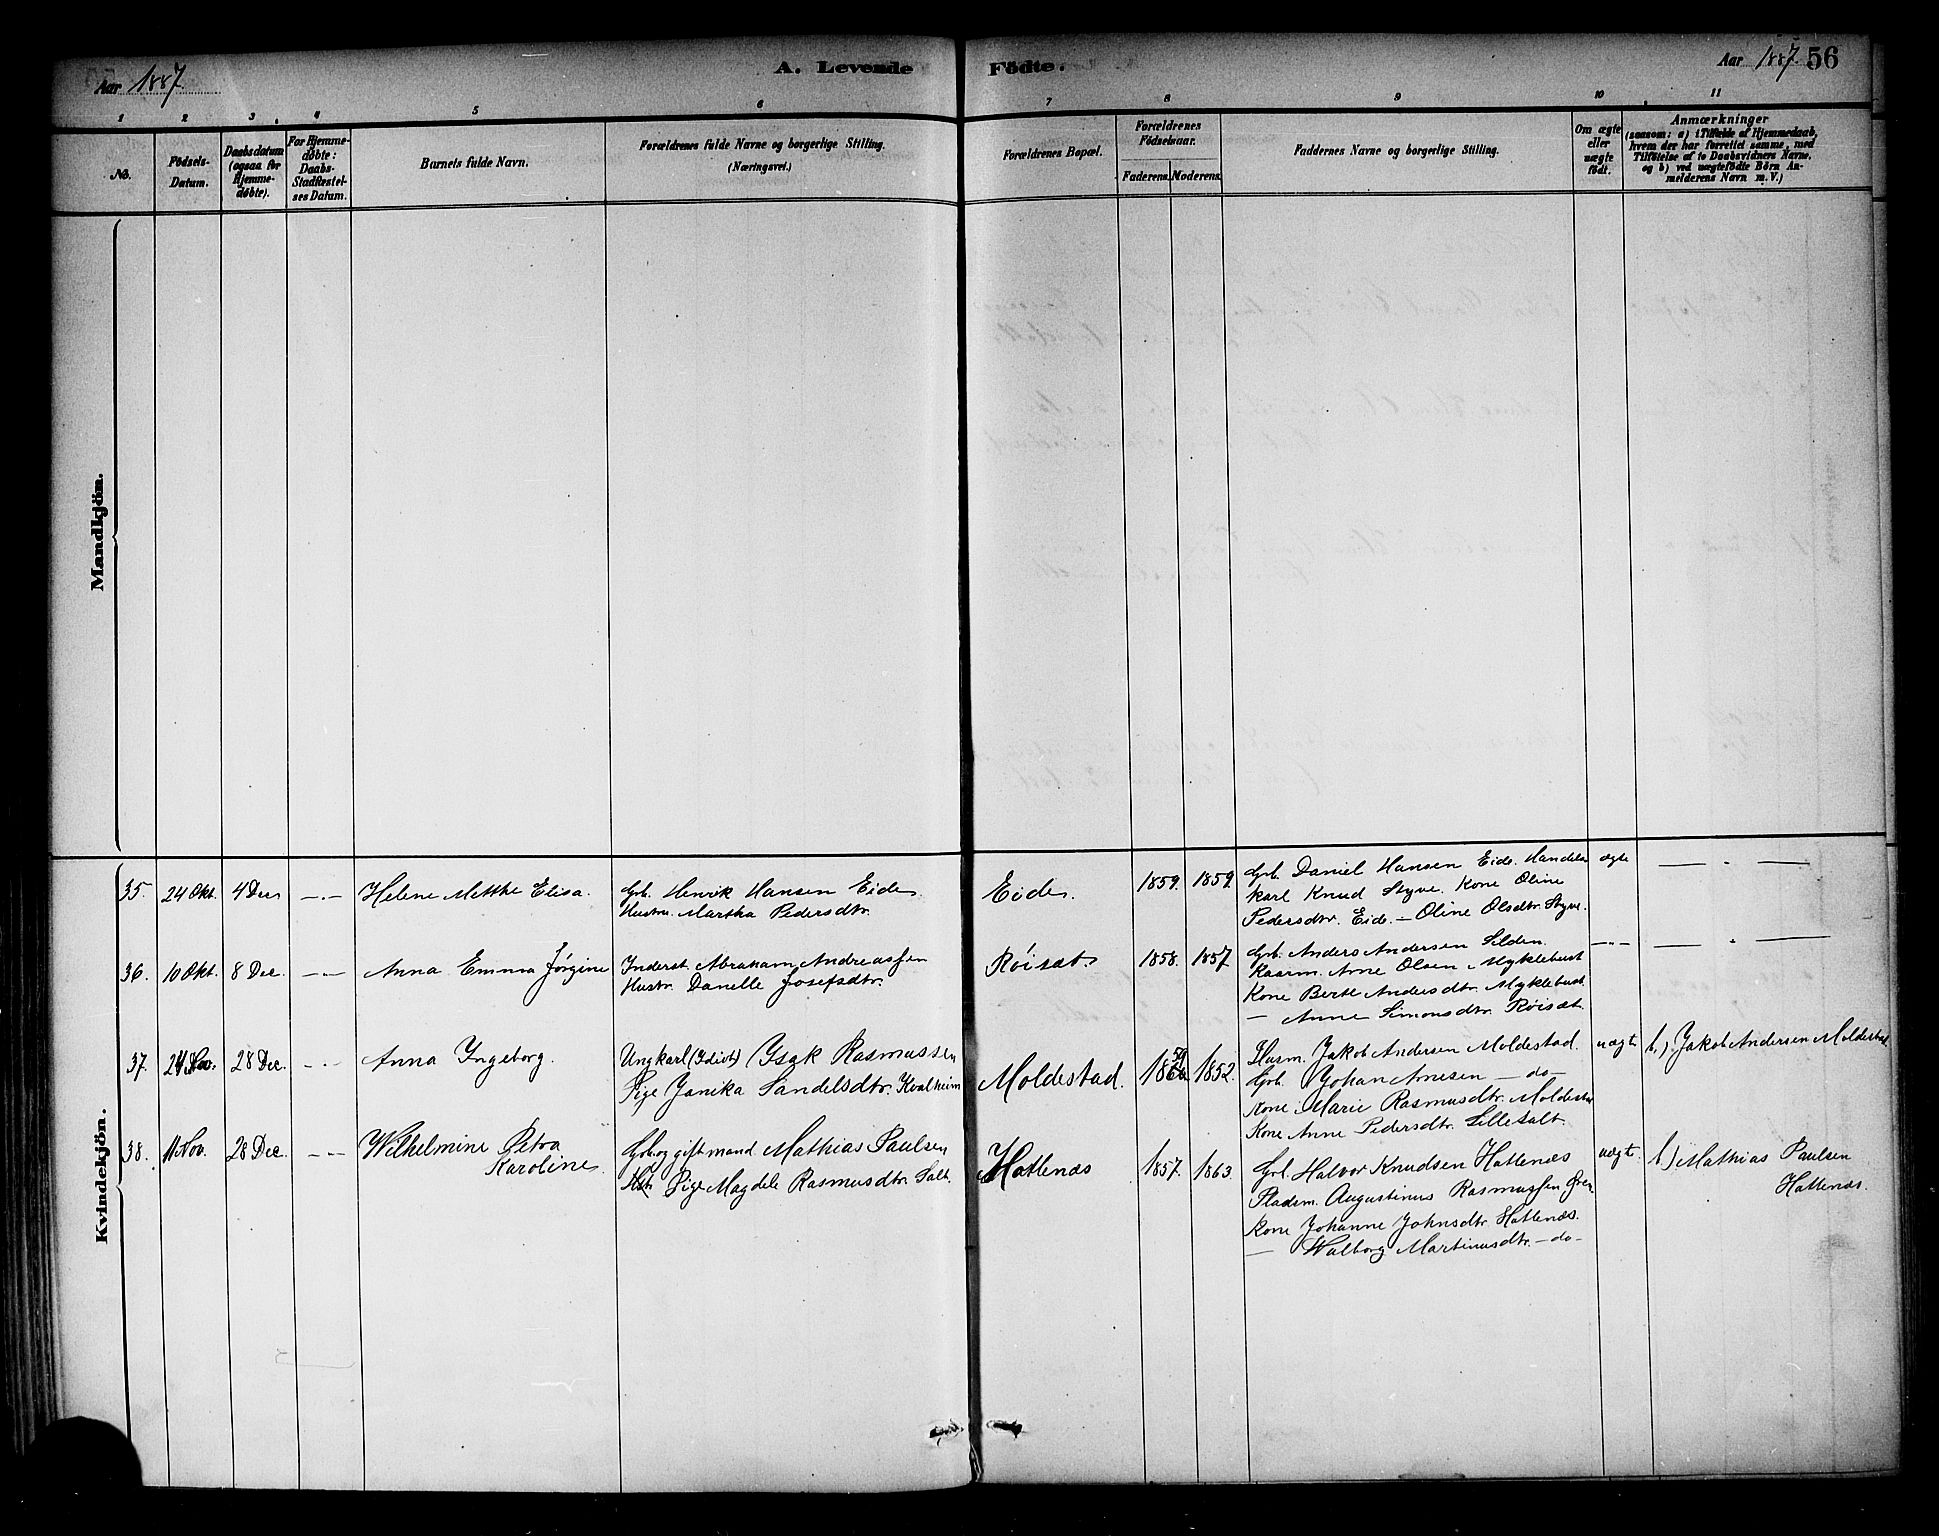 Aar 1887.
A. Levende Födte.
Aar 1887. 56
1 2 3 4 5 6 7 8 9 10 11
No.
Födsels-Datum.
Daabsdatum (ogsaa for Hjemmedøbte).
For Hjemmedøbte: Daabs-Stadfæstelses Datum.
Barnets fulde Navn.
Forældrenes fulde Navne og borgerlige Stilling. (Næringsvei.)
Forældrenes Bopæl.
Forældrenes Födselsaar.
Faderens. Moderens.
Faddernes Navne og borgerlige Stilling.
Om ægte eller uægte födt.
Anmærkninger
(saasom: a) i Tilfælde af Hjemmedaab,
hvem der har forrettet samme, med
Tilföielse af to Daabsvidners Navne,
og b) ved uægtefödte Börn An-
melderens Navn m. V.)
Mandkjön.
Kvindekjön.
35. 24 Okt. 4 Dec. —"— Helene Metthe Elisa.
Grb. Henrik Hansen Eide.
Hustru Martha Pedersdtr.
Eide. 1859. 1859.
Grb. Daniel Hansen Eide. Handels
karl Knud Styve. Kone Oline
Pedersdtr. Eide. — Oline Olsdtr. Styve.
ægte — " —
36. 10 Okt. 8 Dec. —"— Anna Emma Jørgine
Inderst Abraham Andreassen
Hustr. Danelle Josefsdtr.
Röisæt. 1858. 1857
Grb. Anders Andersen Silden.
Kaarm. Arne Olsen Myklebust
Kone Berte Andersdtr. Myklebust.
— Anne Simonsdtr. Röisæt.
—"— — " —
37. 24 Nov. 28 Dec. —"— Anna Ingeborg.
Ungkarl (Idiot) Isak Rasmussen
Pige Janika Sandelsdtr. Kvalheim
Moldestad. 1859 1852.
Husm. Jakob Andersen Moldestad.
Grb. Johan Arnesen — do —
Kone Marie Rasmusdtr. Moldestad
Kone Anne Pedersdtr. Lillesalt.
uægt. b.) Jakob Andersen Moldestad.
38. 11 Nov. 28 Dec. —"— Wilhelmine Petra
Karoline.
Grb. og gift mand Mathias Paulsen
Pige Magdele Rasmusdtr. Salt.
Hatlenæs 1857. 1863.
Grb. Halvor Knudsen Hatlenæs
Pladsm. Augustinus Rasmussen
Kone Johanne Johnsdtr. Hatlenæs.
— Walborg Martinusdtr. — do —
uægt. b.) Mathias Paulsen
Hatlenæs.